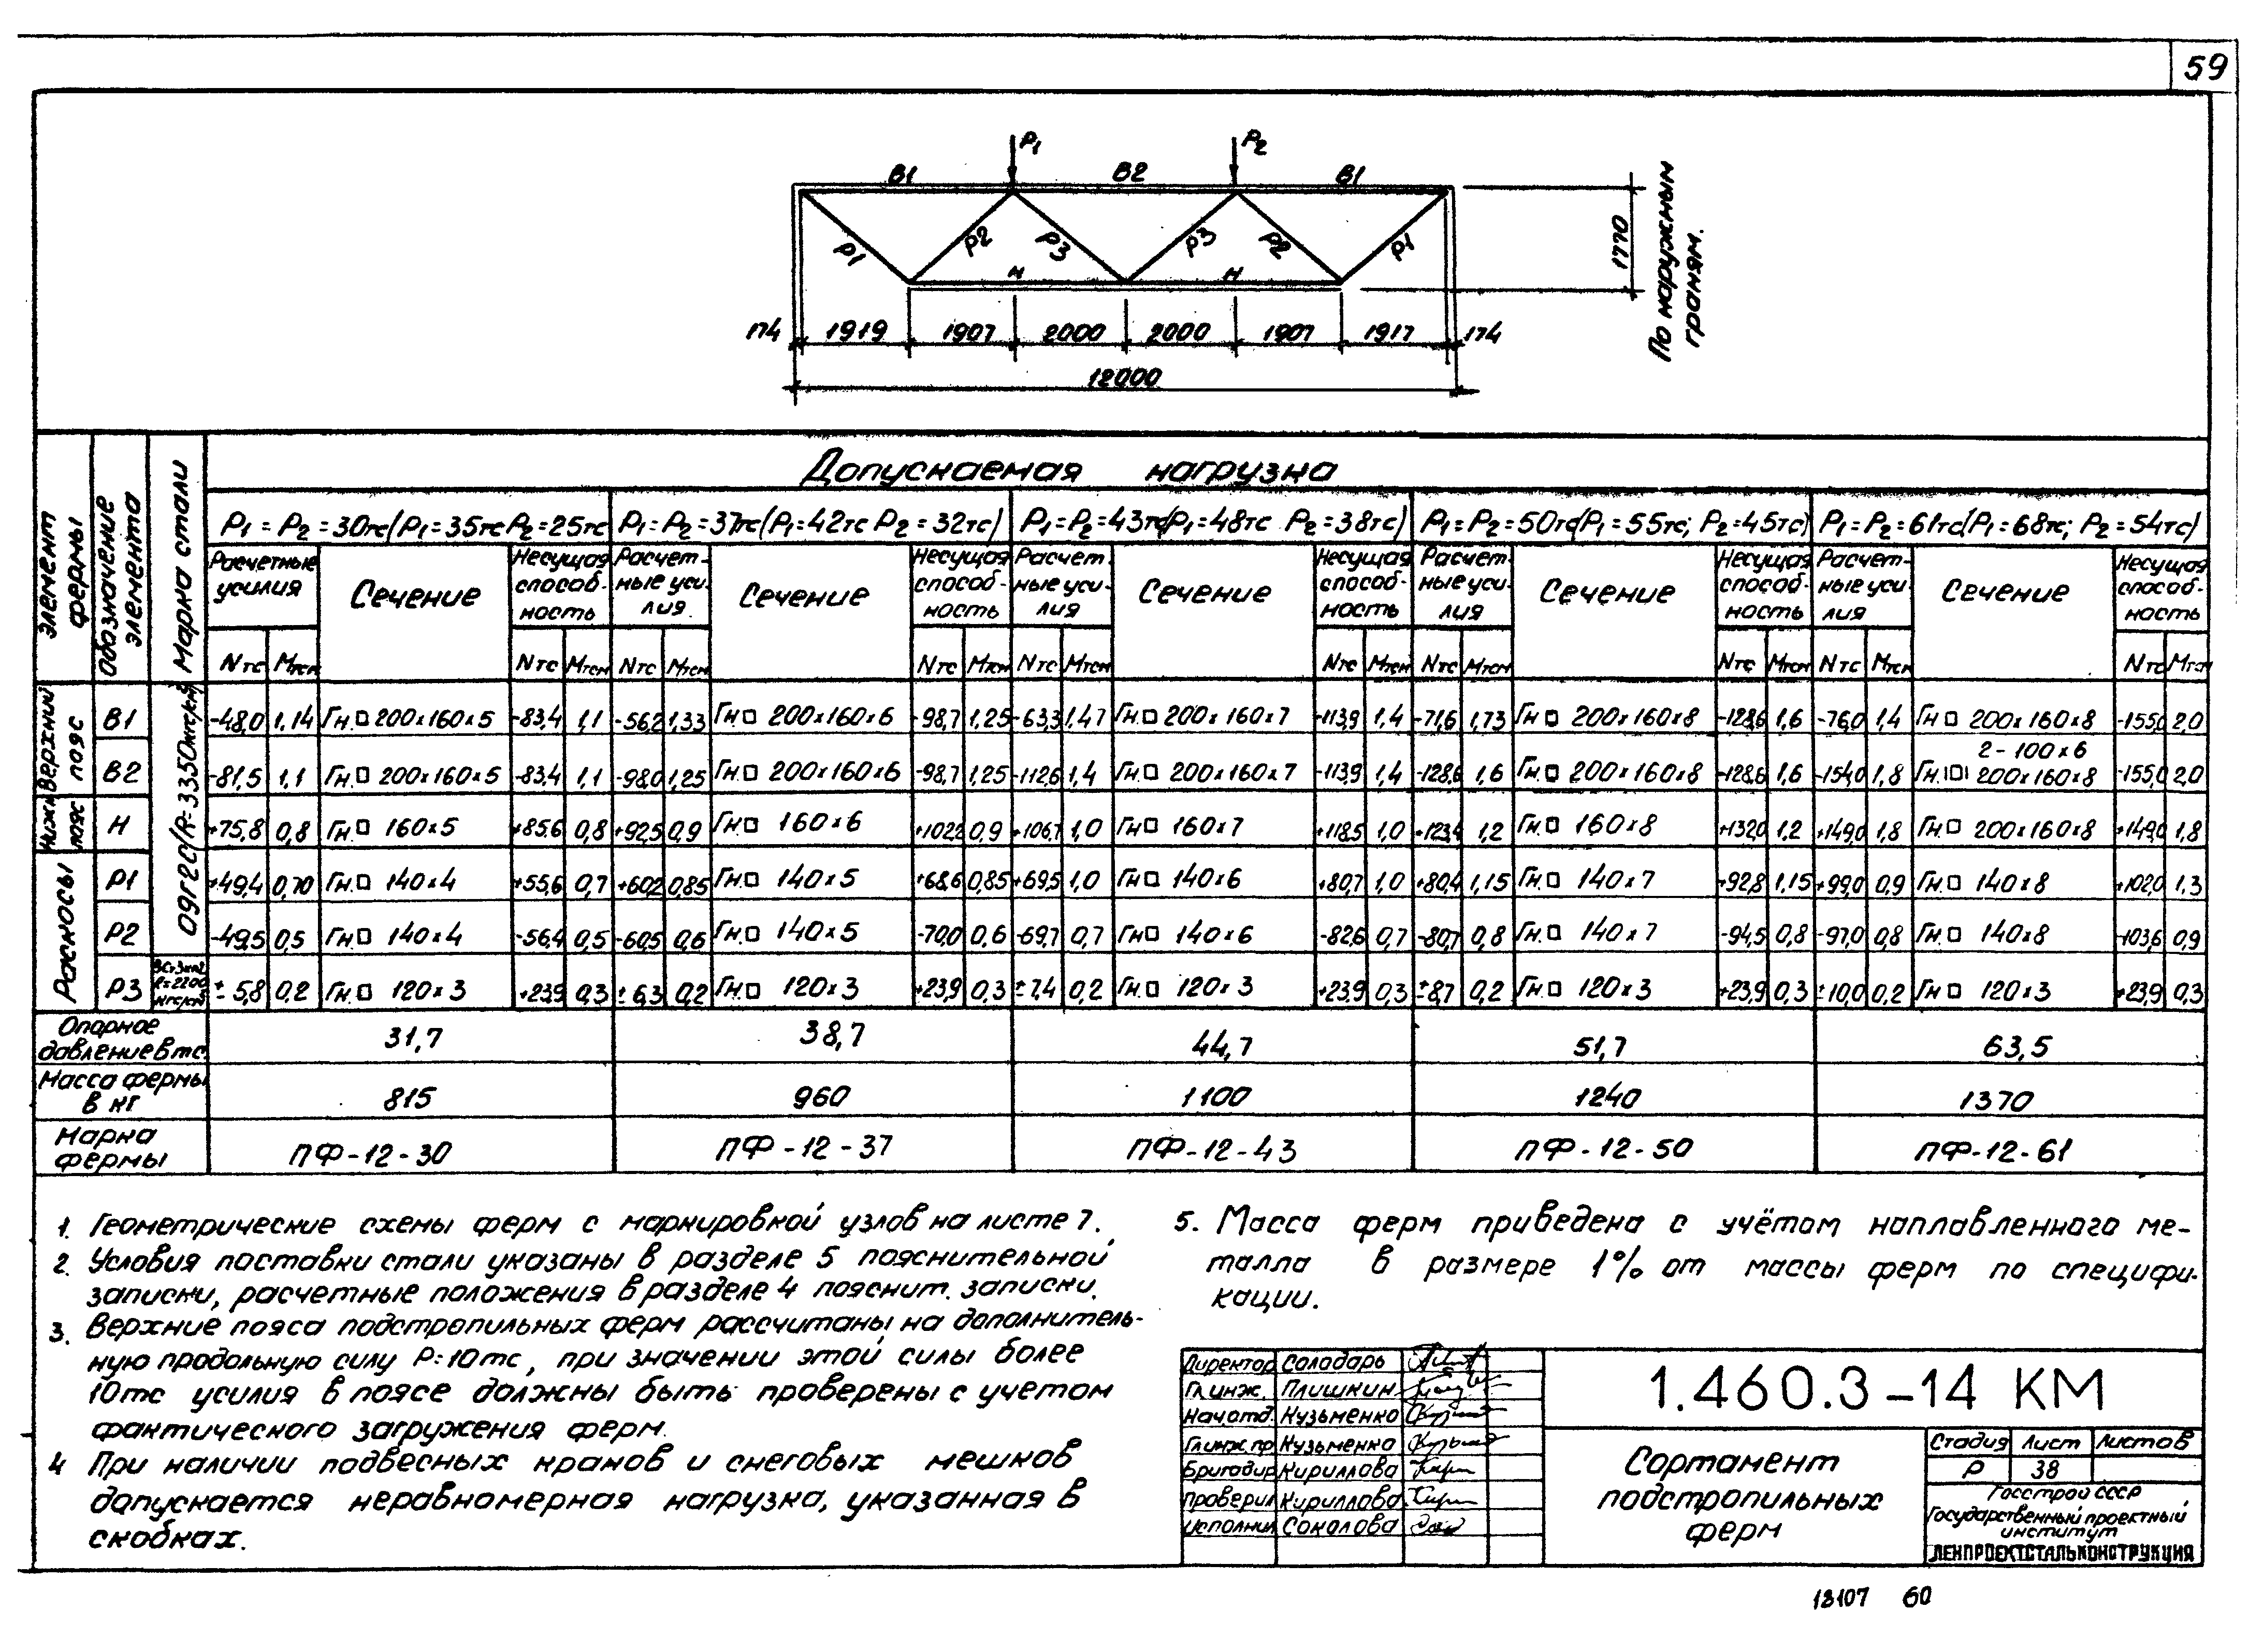 59
P1 P2
В1 В2 В1
Р1 Р2 Р3 Р3 Р2 Р1
Н Н
174 1919 1907 2000 2000 1907 1917 174
12000
1770
По наружным
граням.
Элемент фермы
Обозначение элемента
Марка стали
Допускаемая нагрузка
P1 = P2 = 30тс (P1 = 35тс P2 = 25тс P1 = P2 = 37тс (P1 = 42тс P2 = 32тс) P1 = P2 = 43тс (P1 = 48тс P2 = 38тс) P1 = P2 = 50тс (P1 = 55тс; P2 = 45тс) P1 = P2 = 61тс (P1 = 68тс; P2 = 54тс)
Расчетные усилия Сечение Несущая способность Расчетные усилия Сечение Несущая способность Расчетные усилия Сечение Несущая способность Расчетные усилия Сечение Несущая способность Расчетные усилия Сечение Несущая способность
Nтс Мтсм Nтс Мтсм Nтс Мтсм Nтс Мтсм Nтс Мтсм Nтс Мтсм Nтс Мтсм Nтс Мтсм Nтс Мтсм Nтс Мтсм
Верхний пояс
09Г2С
В1 -48,0 1,14 Гн.□ 200х160х5 -83,4 1,1 -56,2 1,33 Гн.□ 200х160х6 -98,7 1,25 -63,3 1,47 Гн.□ 200х160х7 -113,9 1,4 -71,6 1,73 Гн □ 200х160х8 -128,6 1,6 -76,0 1,4 Гн □ 200х160х8 -155,0 2,0
2-100х6
В2 -81,5 1,1 Гн.□ 200х160х5 -83,4 1,1 -98,0 1,25 Гн.□ 200х160х6 -98,7 1,25 -112,6 1,4 Гн.□ 200х160х7 -113,9 1,4 -128,6 1,6 Гн.□ 200х160х8 -128,6 1,6 -154,0 1,8 Гн.|□| 200х160х8 -155,0 2,0
Нижн. пояс
Н +75,8 0,8 Гн.□ 160х5 +85,6 0,8 +92,5 0,9 Гн.□ 160х6 +102,2 0,9 +106,7 1,0 Гн□ 160х7 +118,5 1,0 +123,4 1,2 Гн.□ 160х8 +132,0 1,2 +149,0 1,8 Гн.□ 200х160х8 +149,0 1,8
Раскосы
Р1 +49,4 0,70 Гн.□ 140х4 +55,6 0,7 +60,2 0,85 Гн.□ 140х5 +68,6 0,85 +69,5 1,0 Гн□ 140х6 +80,7 1,0 +80,4 1,15 Гн.□ 140х7 +92,8 1,15 +99,0 0,9 Гн.□ 140х8 +102,0 1,3
Р2 -49,5 0,5 Гн.□ 140х4 -56,4 0,5 -60,5 0,6 Гн.□ 140х5 -70,0 0,6 -69,7 0,7 Гн□ 140х6 -82,6 0,7 -80,7 0,8 Гн.□ 140х7 -94,5 0,8 -97,0 0,8 Гн.□ 140х8 -103,6 0,9
Р3 ± 5,8 0,2 Гн.□ 120х3 +23,9 0,3 ± 6,3 0,2 Гн.□ 120х3 +23,9 0,3 ± 7,4 0,2 Гн.□ 120х3 +23,9 0,3 ±8,7 0,2 Гн.□ 120х3 +23,9 0,3 ±10,0 0,2 Гн □ 120х3 +23,9 0,3
Опорное давление в тс. 31,7 38,7 44,7 51,7 63,5
Масса фермы в кг 815 960 1100 1240 1370
Марка фермы ПФ-12-30 ПФ-12-37 ПФ-12-43 ПФ-12-50 ПФ-12-61
1. Геометрические схемы ферм с маркировкой узлов на листе 7.
2. Условия поставки стали указаны в разделе 5 пояснительной
записки, расчетные положения в разделе 4 пояснит. записки.
3. Верхние пояса подстропильных ферм рассчитаны на дополнитель-
ную продольную силу Р=10тс, при значении этой силы более
10тс усилия в поясе должны быть проверены с учетом
фактического загружения ферм.
4 При наличии подвесных кранов и снеговых мешков
допускается неравномерная нагрузка, указанная в
скобках.
5. Масса ферм приведена с учётом наплавленного ме-
талла в размере 1% от массы ферм по специфи-
кации.
Директор Солодарь
Гл.инж. Плишкин
Нач.отд. Кузьменко
Гл.инж.пр Кузьменко
Бригадир Кириллова
Проверил Кириллова
Исполнил Соколова
1.460.3-14 КМ
Сортамент
подстропильных
ферм
Стадия Лист Листов
Р 38
Госстрой СССР
Государственный проектный
институт
ЛЕНПРОЕКТСТАЛЬКОНСТРУКЦИЯ
18107 60